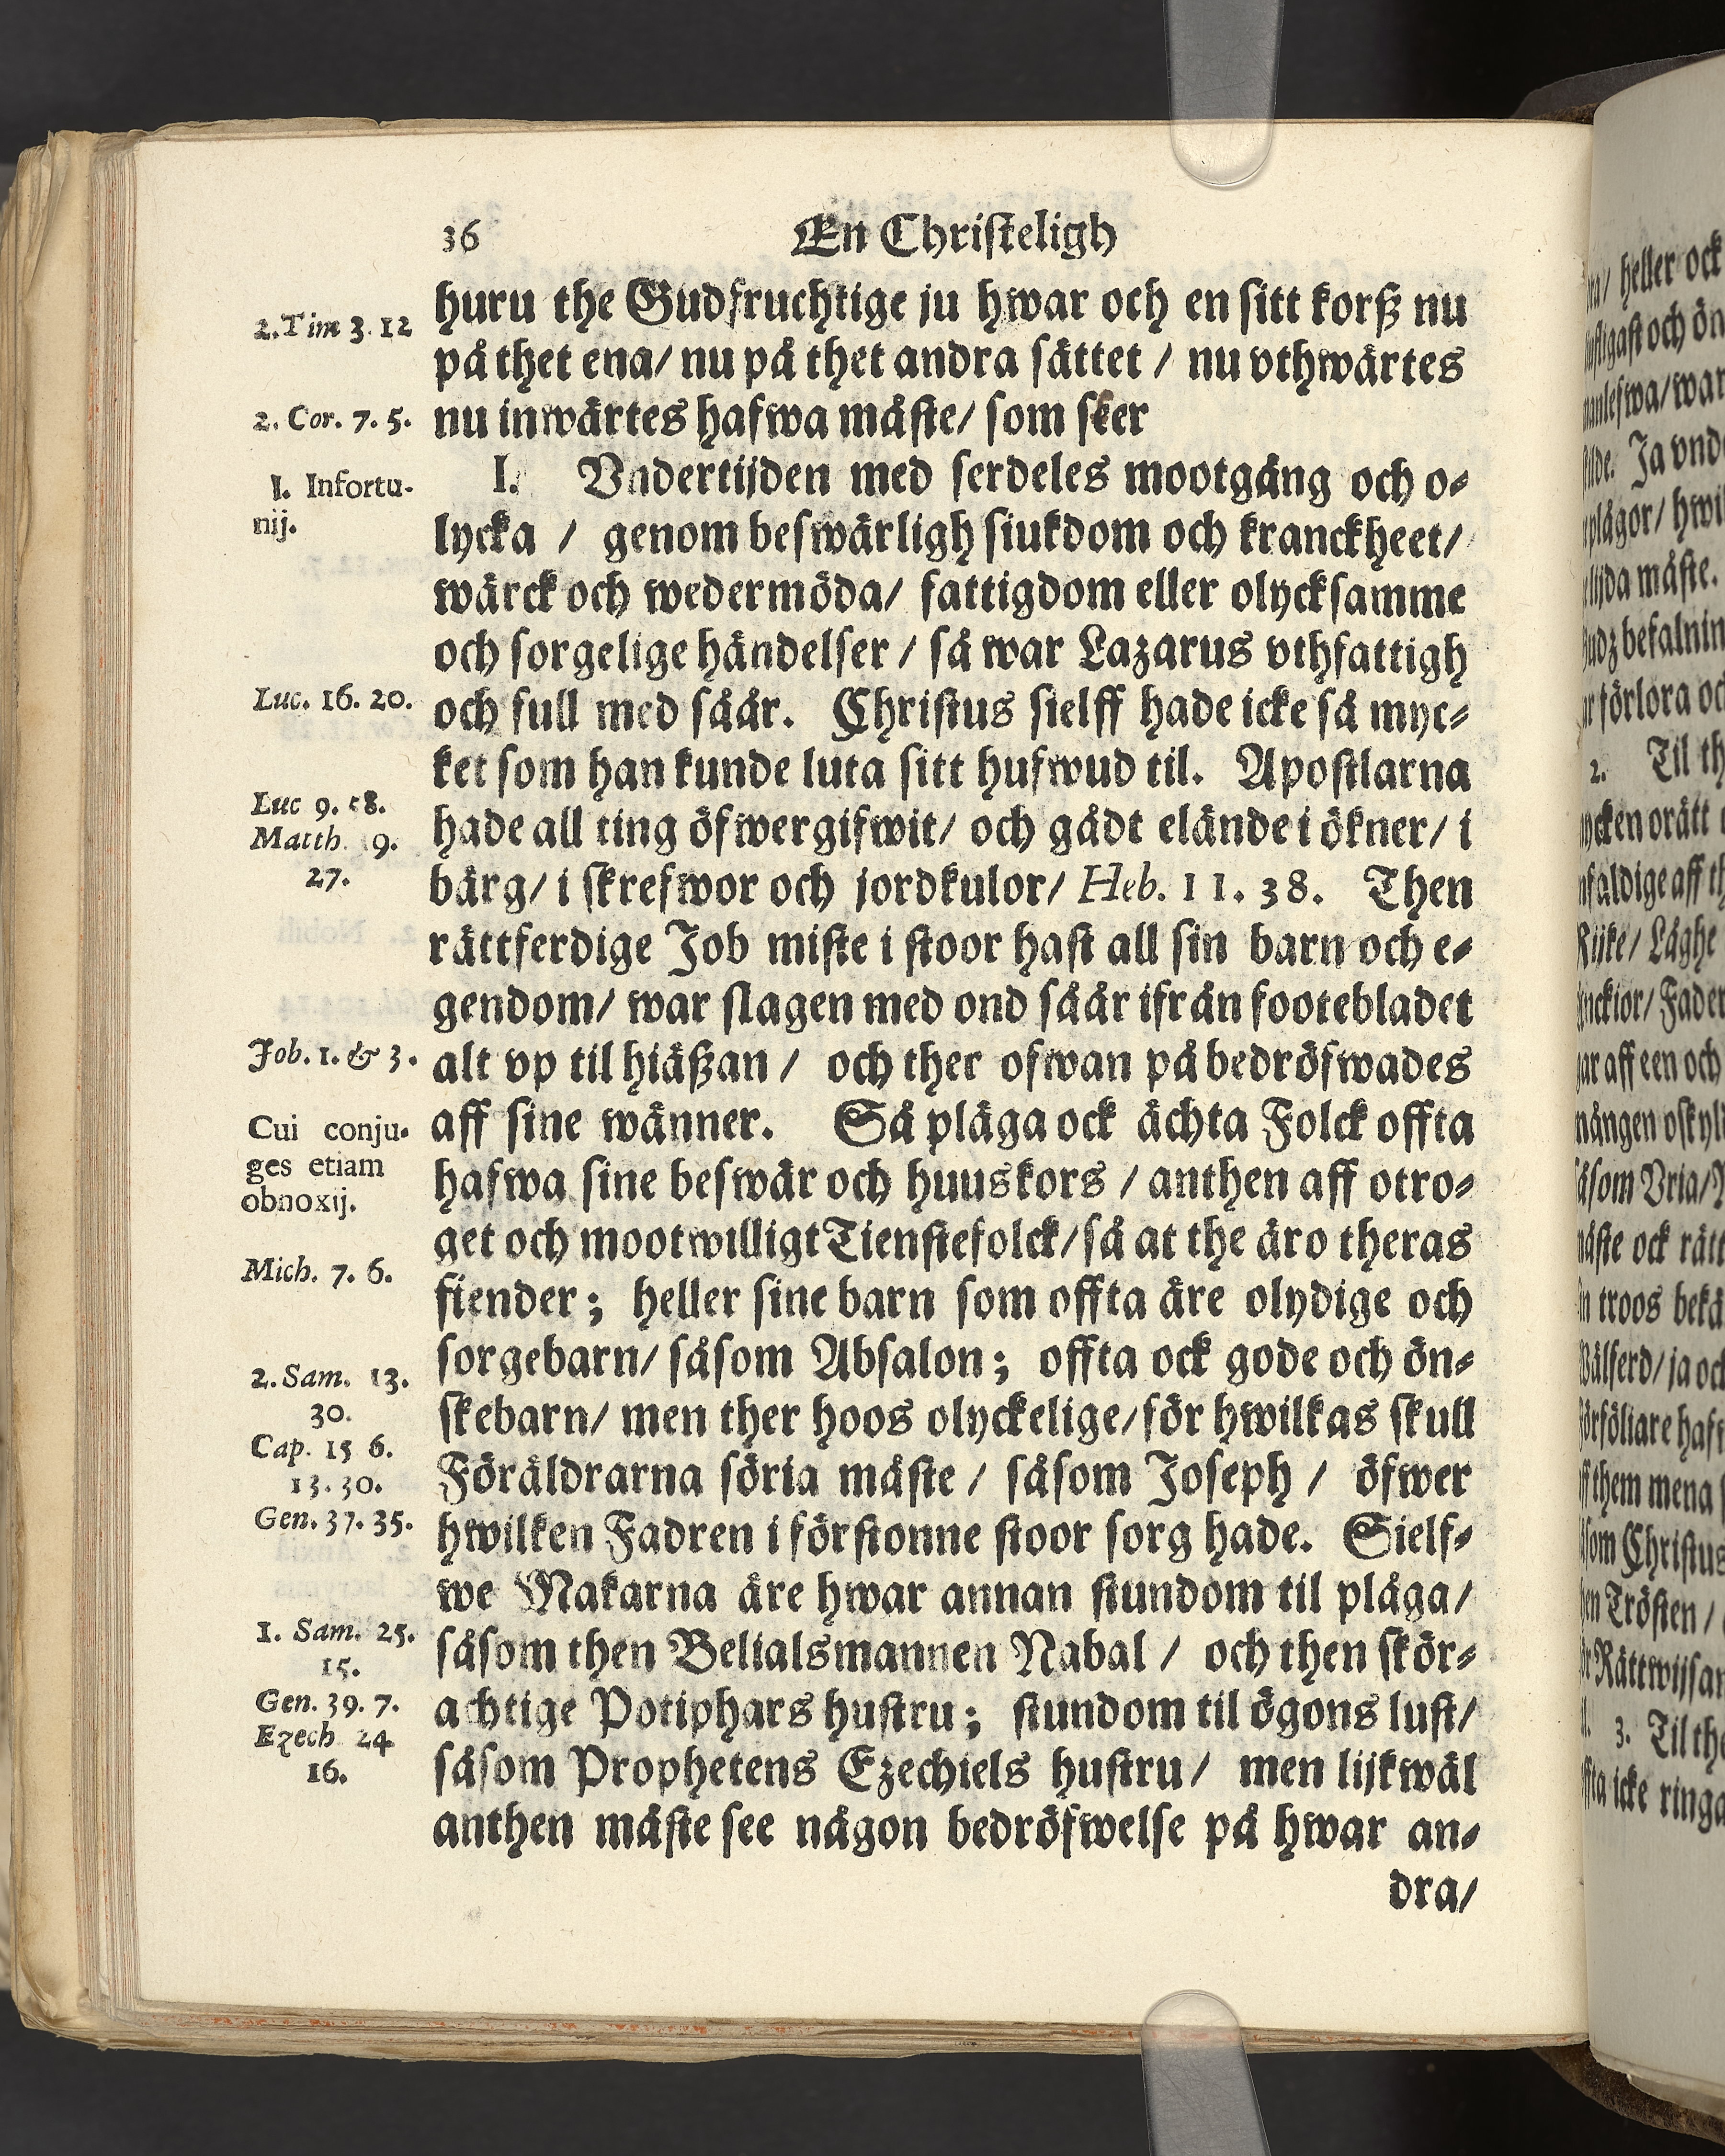 36
En Christeligh
huru the Gudfruchtige ju hwar och en sitt korß nu
på thet ena/ nu på thet andra sättet / nu vthwärtes
nu inwärtes hafwa måste/ som sker
I. Vndertijden med serdeles mootgång och o-
lycka / genom beswärligh siukdom och kranckheet/
wärck och wedermöda/ fattigdom eller olycksamme
och sorgelige händelser / så war Lazarus vthfattigh
och full med såår. Christus sielff hade icke så myc-
ket som han kunde luta sitt hufwud til. Apostlarna
hade all ting öfwergifwit/ och gådt elände i ökner/ i
bärg/ i skrefwor och jordkulor/ Heb. 11. 38. Then
rättferdige Job miste i stoor hast all sin barn och e-
gendom/ war slagen med ond såår ifrån footebladet
alt vp til hiäßan / och ther ofwan på bedröfwades
aff sine wänner. Så plåga ock ächta Folck offta
hafwa sine beswär och huuskors / anthen aff otro-
get och mootwilligt Tienstefolck/ så at the äro theras
fiender; heller sine barn som offta äre olydige och
sorgebarn/ såsom Absalon; offta ock gode och ön-
skebarn/ men ther hoos olyckelige/ för hwilkas skull
Föräldrarna söria måste / såsom Joseph / öfwer
hwilken Fadren i förstonne stoor sorg hade. Sielf-
we Makarna äre hwar annan stundom til plåga/
såsom then Belialsmannen Nabal / och then skör-
achtige Potiphars hustru; stundom til ögons lust/
såsom Prophetens Ezechiels hustru/ men lijkwäl
anthen måste see någon bedröfwelse på hwar an-
dra/
2. Tim 3. 12
2. Cor. 7. 5.
I. Infortu-
nij.
Luc. 16. 20.
Luc 9. 58.
Matth. 19.
27.
Job. 1. & 3.
Cui conju-
ges etiam
obnoxij.
Mich. 7. 6.
2. Sam. 13.
30.
Cap. 15 6.
13. 30.
Gen. 37. 35.
1. Sam. 25.
15.
Gen. 39. 7.
Ezech 24
16.